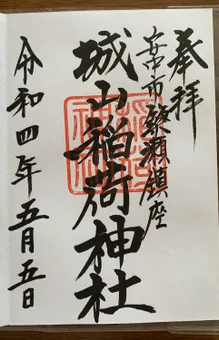 奉拝
安中市簗瀬鎮座
城山稲荷神社
令和四年五月五日